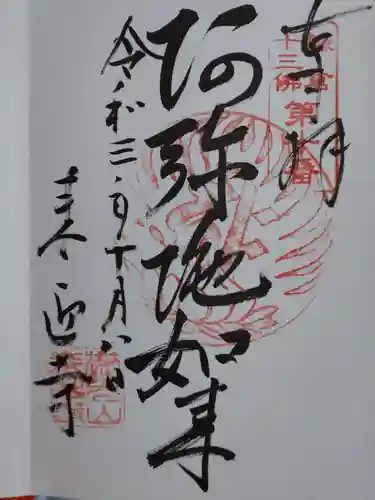 奉拝
鎌倉
十三佛
第十番
阿弥陀如来
令和三年十月八日
来迎寺